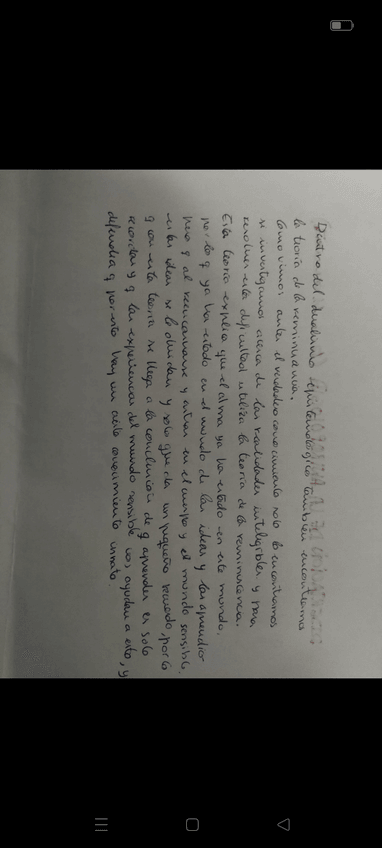 Dentro del dualismo epistemológico también encontramos
la teoría de la reminiscencia.
Como vimos antes el verdadero conocimiento solo lo encontramos
si investigamos acerca de las realidades inteligibles y para
resolver esta dificultad utiliza la teoría de la reminiscencia.
Esta teoría explica que el alma ya ha estado en este mundo,
por lo q ya ha estado en el mundo de las ideas y las aprendió
pero q al reencarnarse y entrar en el cuerpo y el mundo sensible
estas ideas se le olvidan y solo queda un pequeño recuerdo, por lo
q con esta teoría se llega a la conclusión de q aprender es solo
recordar y q las experiencias del mundo sensible nos ayudan a esto, y
defendía q por esto hay un conocimiento innato.